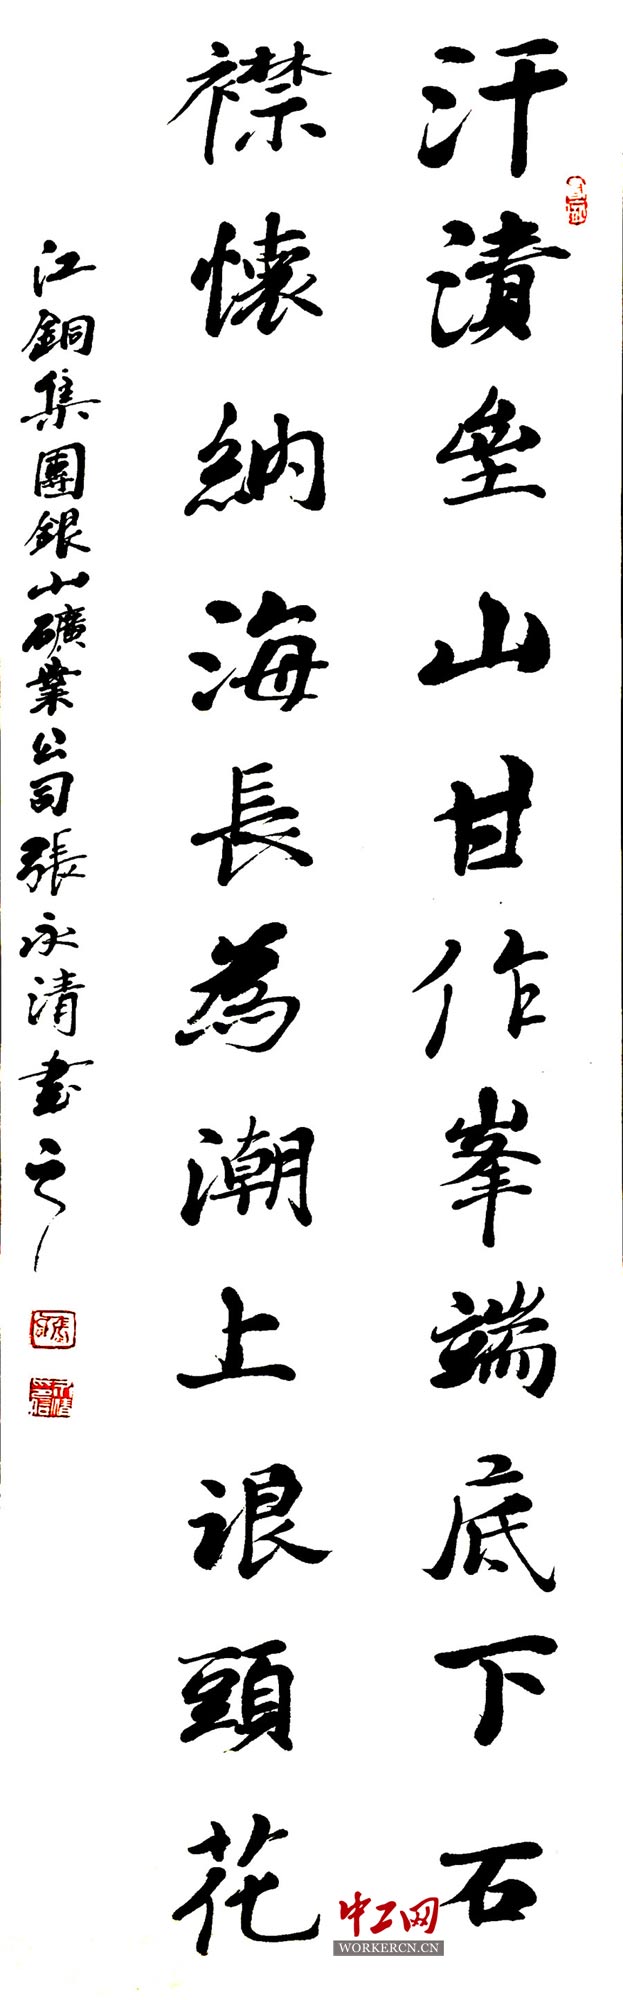 汗漬壘山甘作峯端底下石
襟懷納海長為潮上浪頭花
江銅集團銀山礦業公司張永清書之
中工网
WORKERCN.CN